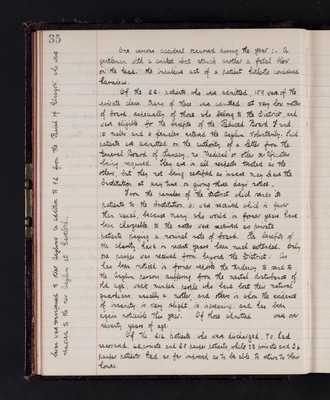 35
One serious accident occurred during the year :- A
gentleman with a cricket bat struck another a fatal blow
on the head. The insulting act of a patient hitherto considered
harmless.
Of the 221 patients who was admitted, 109 were of the
private class. Many of these was admitted at very low rates
of board, especially of those who belong to the District, and
were eligible for the benefits of the Reduced Board Fund
10 males and 8 females entered the Asylum Voluntarily. Such
patients are admitted on the authority of a letter from the
General Board of Lunacy, no Medical or other certificates
being required. They are in all respects treated as the
others, but they not being certified as insane may leave the
Institution at any time on giving three days notice.
From the counties of the District which sends its
patients to the Institution, was received which is fewer
than usual, because many who would in former years have
been chargeable to the rates were received as private
patients paying a nominal rate of board. The benefits of
the charity have in recent years been much extended. Only
one pauper was received from beyond the District. As
has been noticed in former reports the tendency to send to
the Asylum persons suffering from the mental disturbance of
old age, weak minded people who have lost their natural
guardians, usually a mother, and others in whom the evidence
of insanity is very slight, is increasing, and has been
again noticeable this year. Of those admitted were over
seventy years of age.
Of the 212 patients who were discharged, 70 had
recovered, private and pauper patients, while 28 private and 24
pauper patients had so far improved as to be able to return to their
homes.
were removed to other Asylums in addition to 92 from the Parish of who were
removed to the new Asylum at